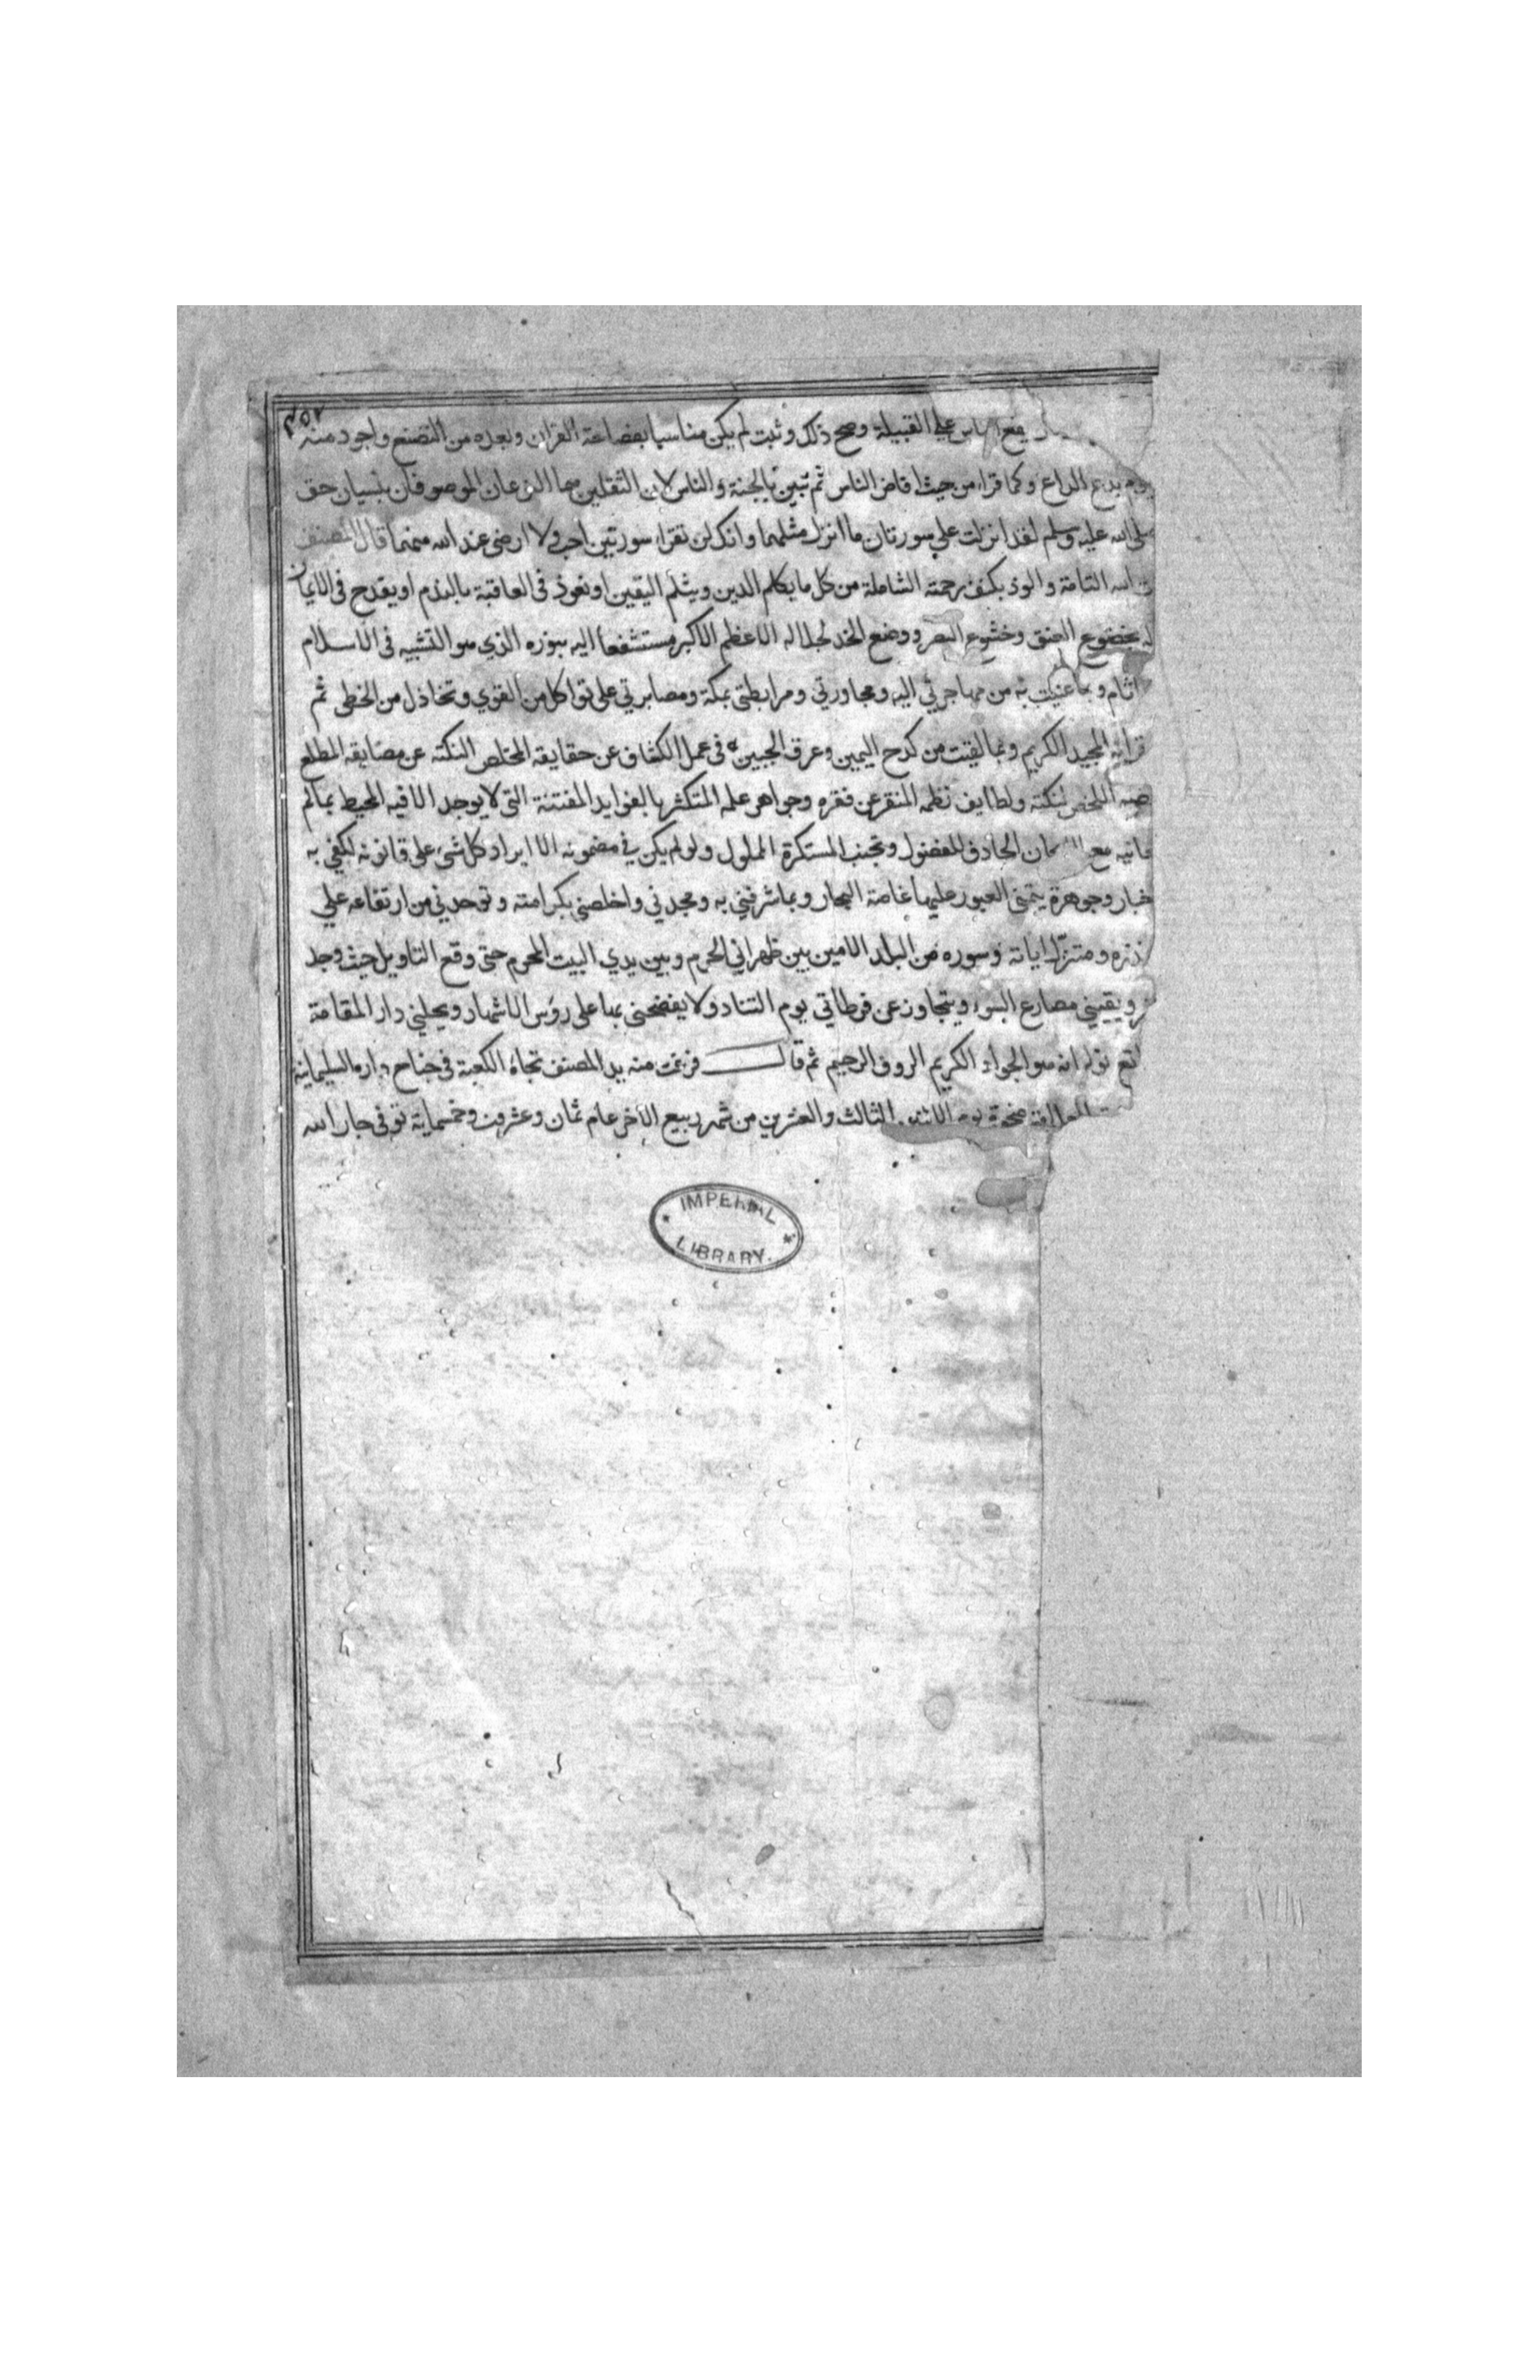 ٢٥٢
يقع الناس على القبيلة وصح ذلك وثبت لم يكن مناسبا بفصاحة القران وبعده من التصنع واجود منه
يوم يدع الداع وكما قراء من حيث افاض الناس ثم تبين بالجنة والناس لان الثقلين هما النوعان الموصوفان بنسيان حق
صلى الله عليه وسلم لقد انزلت علي سورتان ما انزل مثلهما وانك لن تقراء سورتين احب ولا ارضى عند الله منهما قال المصنف
الله التامة والوذ بكنف رحمته الشاملة من كل ما يكلم الدين ويثلم اليقين او يعود في العاقبة بالندم او يقدح في الايمان
بخضوع العنق وخشوع البصر ووضع الخد لجلاله الاعظم الاكبر مستشفعا اليه بنوره الذي هو الشيبة في الاسلام
اثام وبما عنيت به من مهاجرتي اليه ومجاورتي ومرابطتي بمكة ومصابرتي على تواكل من القوي وتخاذل من الخطى ثم
قرانه المجيد الكريم وبما لقيت من كدح اليمين وعرق الجبين في عمل الكشاف عن حقايقه المخلص النكته عن مضايقه المطلع
الملخص لنكته ولطايف نظمه المنقر عن فقره وجواهر علمه المتكثر بالفوايد المفتنة التي لا يوجد الا فيه المحيط بما لم
مع الحاذف للفضول وتجنب المستكره المملول ولو لم يكن في مضمونه الا ايراد كل شيء على قانونه لكفي به
وجوهرة يتمنى العبور عليها غاصة البحار وبما شرفني به ومجدني واخلصني بكرامته وتوحدني من ارتفاعه علي
ومتنزل اياته وسوره من البلد الامين بين ظهراني الحرم وبين يدي البيت المحرم حتى وقع التاويل حيث وجد
ويقيني مصارع السوء ويتجاوز عن فرطاتي يوم التناد ولا يفضحني بها على رؤس الاشهاد ويحلني دار المقامة
انه هو الجواد الكريم الروف الرحيم ثم قال فرغت منه يد المصنف تجاه الكعبة في جناح داره السليمانية
ضحوة يوم الاثنين الثالث والعشرين من شهر ربيع الاخر عام ثمان وعشرين وخمسماية توفي جار الله
IMPERIAL
LIBRARY.